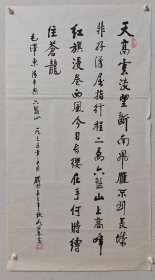 天高雲淡望斷南飛雁不到長城
非好漢屈指行程二萬六盤山上高峰
紅旗漫卷西風今日長纓在手何時縛
住蒼龍
毛澤東清平樂六盤山 一九三五年十月